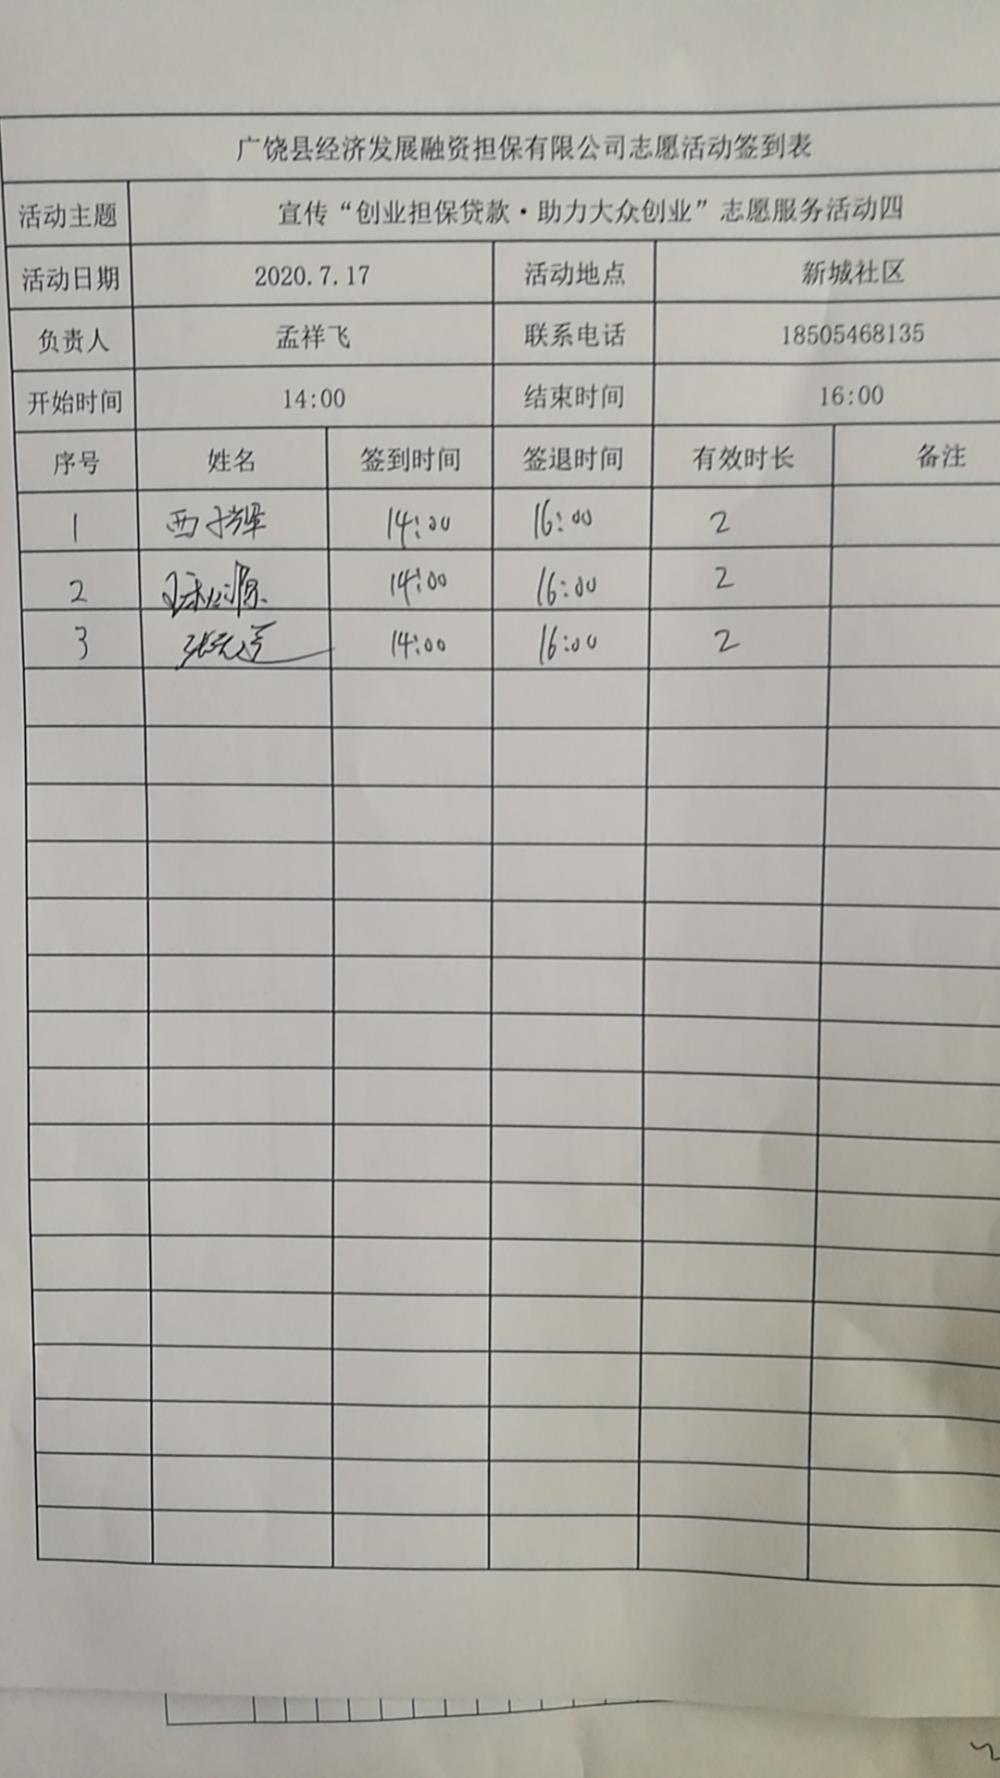 广饶县经济发展融资担保有限公司志愿活动签到表
活动主题 宣传“创业担保贷款·助力大众创业”志愿服务活动四
活动日期 2020.7.17 活动地点 新城社区
负责人 孟祥飞 联系电话 18505468135
开始时间 14:00 结束时间 16:00
序号 姓名 签到时间 签退时间 有效时长 备注
1 14:00 16:00 2
2 14:00 16:00 2
3 14:00 16:00 2